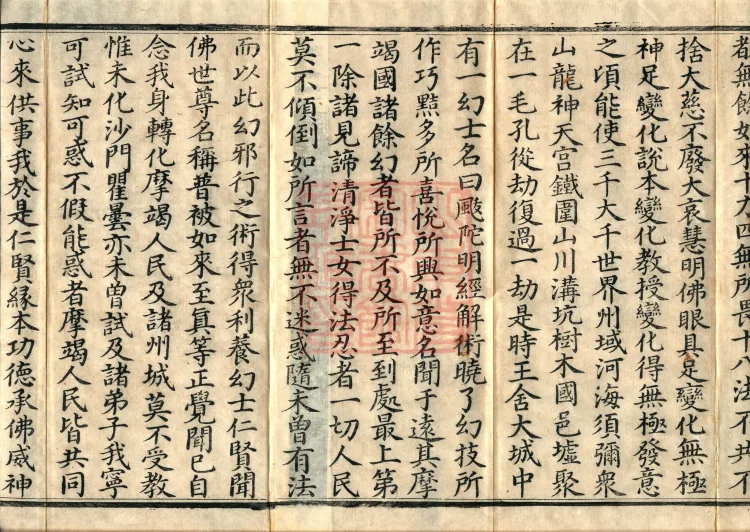 者無餘如來十力四無所畏十八法不共不
捨大慈不廢大哀慧明佛眼具足變化無極
神足變化說本變化教授變化得無極發意
之頃能使三千大千世界州域河海須彌衆
山龍神天宮鐵圍山川溝坑樹木國邑墟聚
在一毛孔從劫復過一劫是時王舍大城中
有一幻士名曰颰陀明經解術曉了幻技所
作巧黠多所喜悅所興如意名聞于遠其摩
竭國諸餘幻者皆所不及所至到處最上第
一除諸見諦清淨士女得法忍者一切人民
莫不傾倒如所言者無不迷惑隨未曾有法
而以此幻邪行之術得衆利養幻士仁賢聞
佛世尊名稱普被如來至真等正覺聞已自
念我身轉化摩竭人民及諸州城莫不受教
惟未化沙門瞿曇亦未曾試及諸弟子我寧
可試知可惑不假能惑者摩竭人民皆共同
心來供事我於是仁賢緣本功德承佛威神